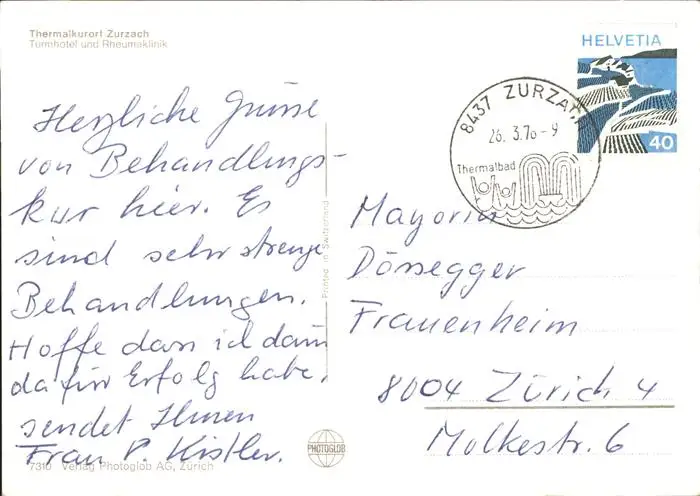 Thermalkurort Zurzach
Turmhotel und Rheumaklinik
Herzliche Grüsse
von Behandlungs-
kur hier. Es
sind sehr strenge
Behandlungen.
Hoffe dass ich dann
dafür Erfolg habe,
sendet Ihnen
Frau P. Kistler.
7310 Verlag Photoglob AG, Zürich
Printed in Switzerland
PHOTOGLOB
HELVETIA
40
8437 ZURZACH
26. 3.76-9
Thermalbad
Mayorin
Dössegger
Frauenheim
8004 Zürich 4
Molkestr. 6